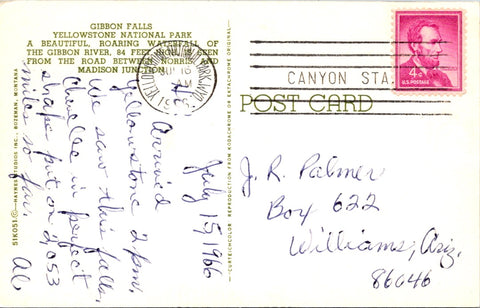 GIBBON FALLS
YELLOWSTONE NATIONAL PARK
A BEAUTIFUL, ROARING WATERFALL OF
THE GIBBON RIVER, 84 FEET HIGH, IS SEEN
FROM THE ROAD BETWEEN NORRIS AND
MADISON JUNCTION
CANYON STA
4¢
U.S. POSTAGE
POST CARD
July 15, 1966
Arrived
Yellowstone 2 p.m.
We saw this falls,
Charlee in perfect
shape put on 2,053
miles so far.
Al
J. R. Palmer
Box 622
Williams, Ariz.
86046
51K051 ©—HAYNES STUDIOS INC., BOZEMAN, MONTANA
REPRODUCTION FROM KODACHROME OR EKTACHROME ORIGINAL